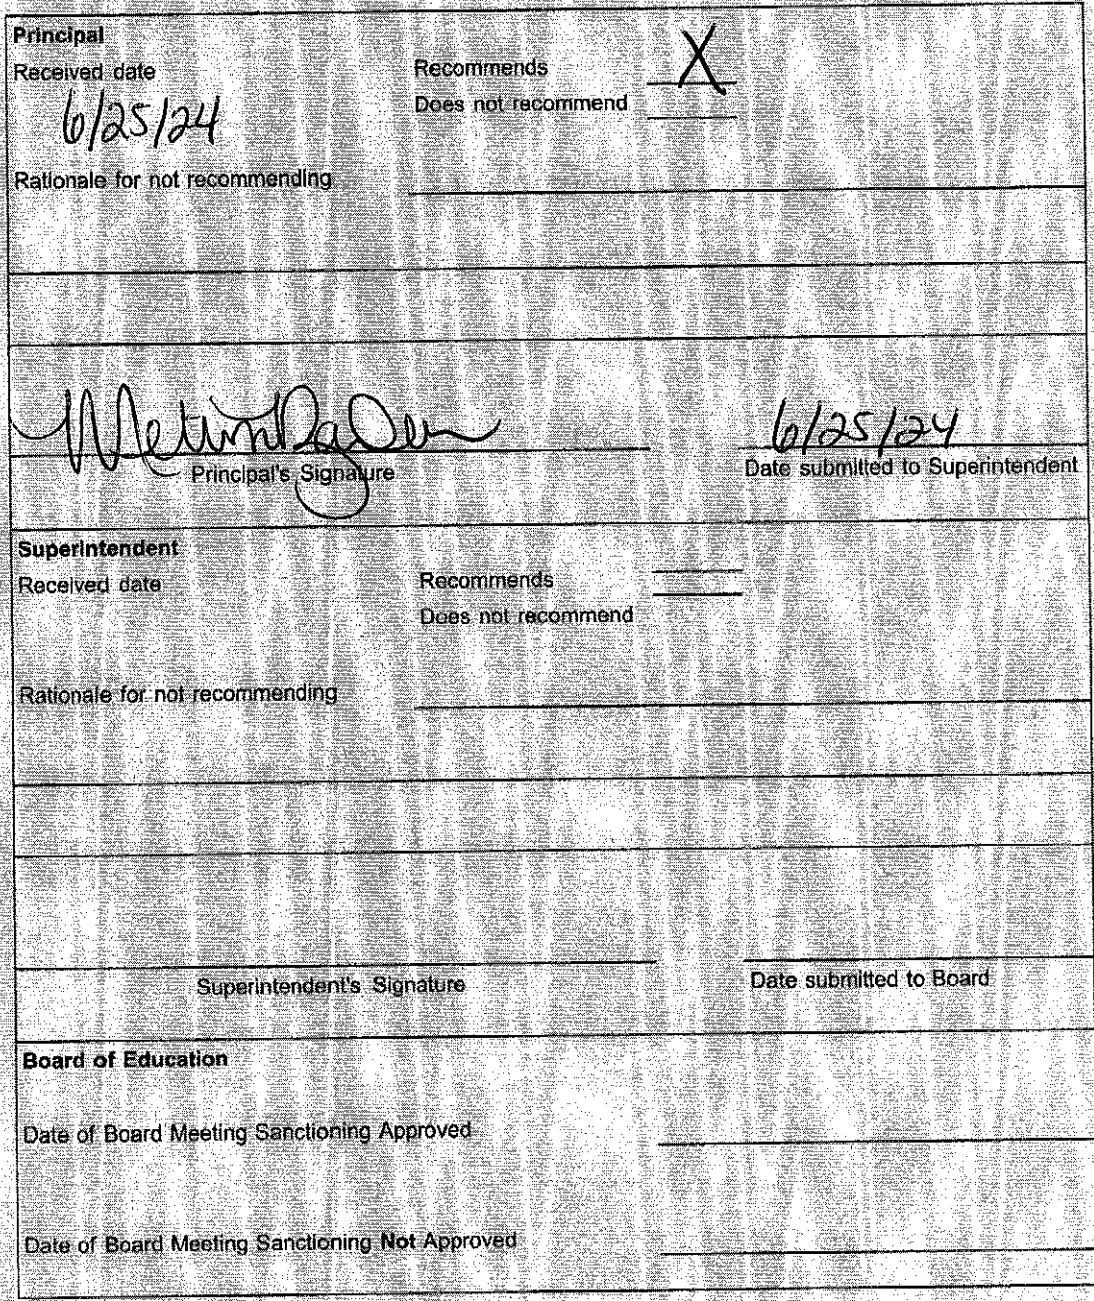 Principal
Received date
Recommends X
6/25/24
Does not recommend
Rationale for not recommending
6/25/24
Principal's Signature
Date submitted to Superintendent
Superintendent
Received date
Recommends
Does not recommend
Rationale for not recommending
Superintendent's Signature
Date submitted to Board
Board of Education
Date of Board Meeting Sanctioning Approved
Date of Board Meeting Sanctioning Not Approved